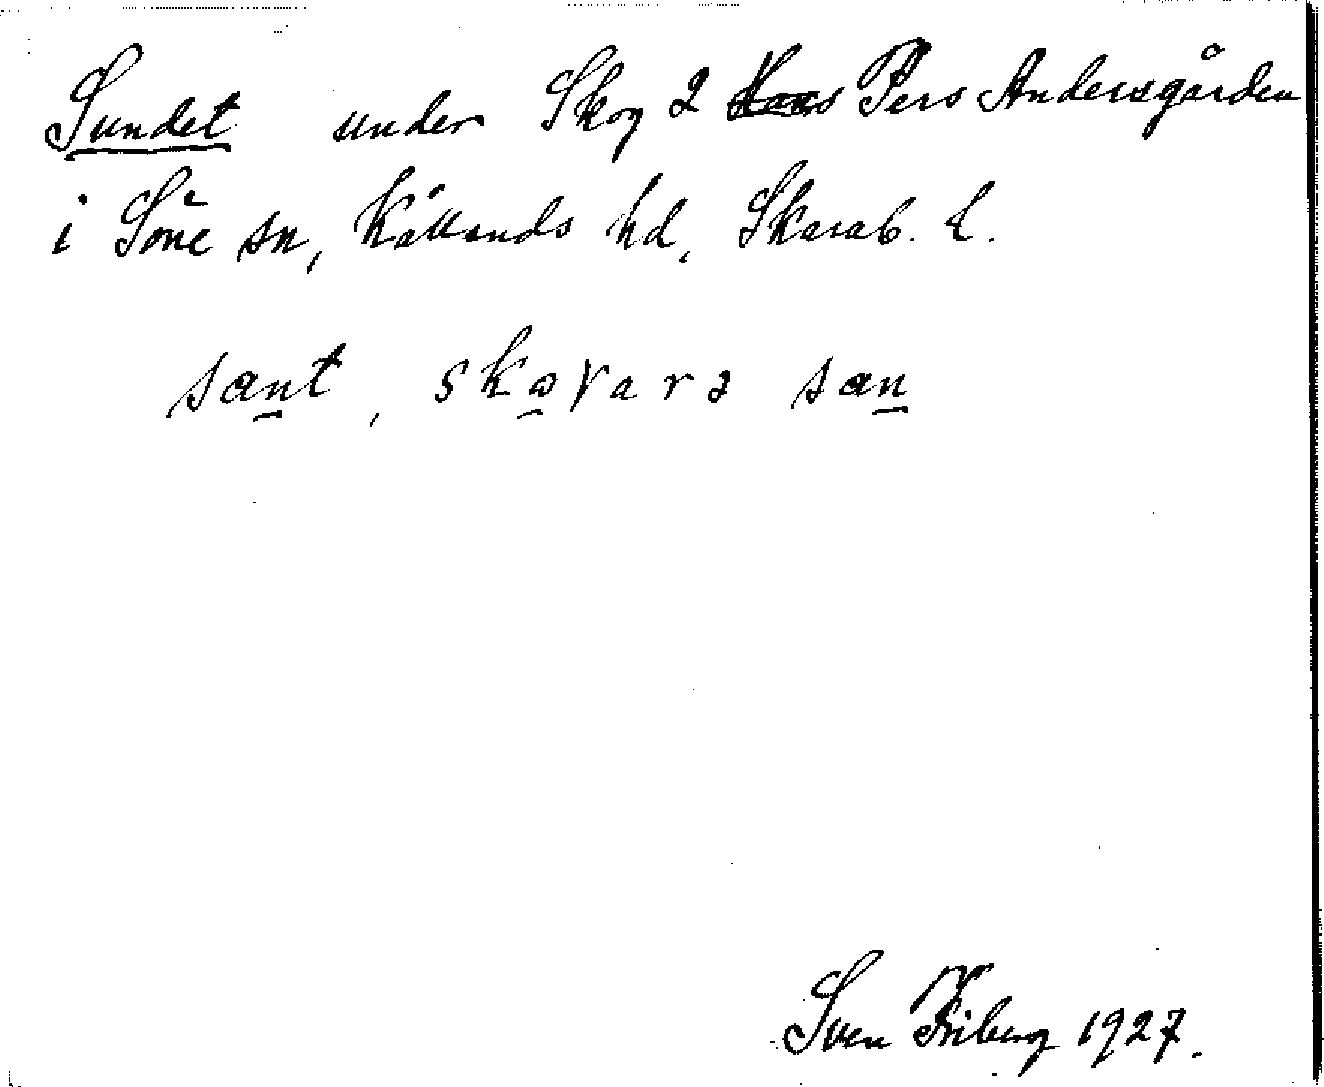 Sundet under Skog 2 Pers Andersgården
i Söne sn, Kållands hd, Skarab. L.
sant, skoγarə san
Sven Friberg 1927.